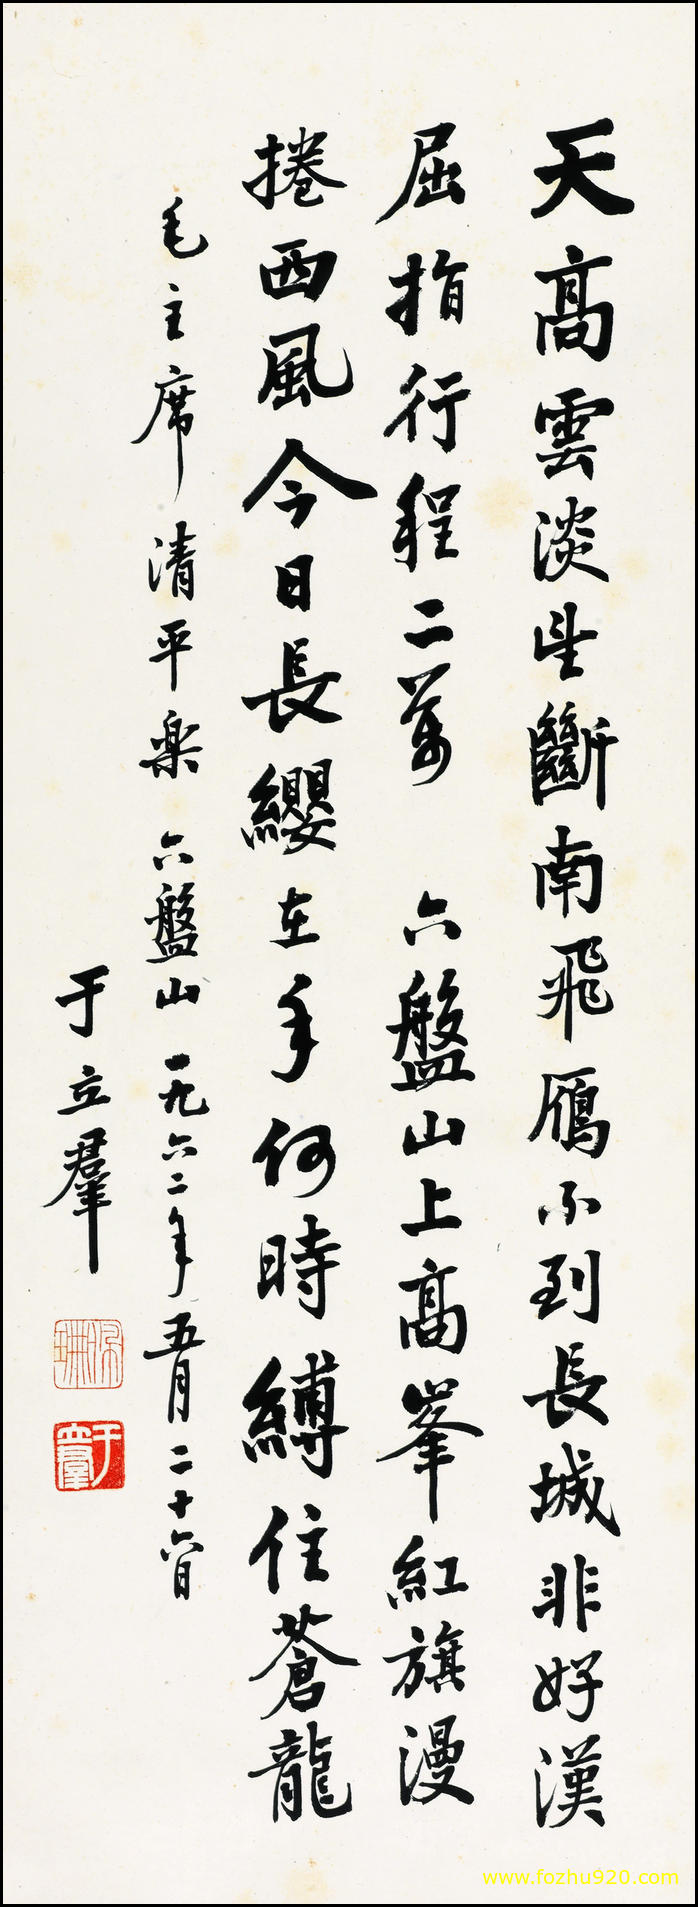 天高雲淡望斷南飛鴈不到長城非好漢
屈指行程二萬 六盤山上高峯紅旗漫
捲西風今日長纓在手何時縛住蒼龍
毛主席清平樂 六盤山 一九六二年五月二十六日
于立羣
于立羣
www.fozhu920.com